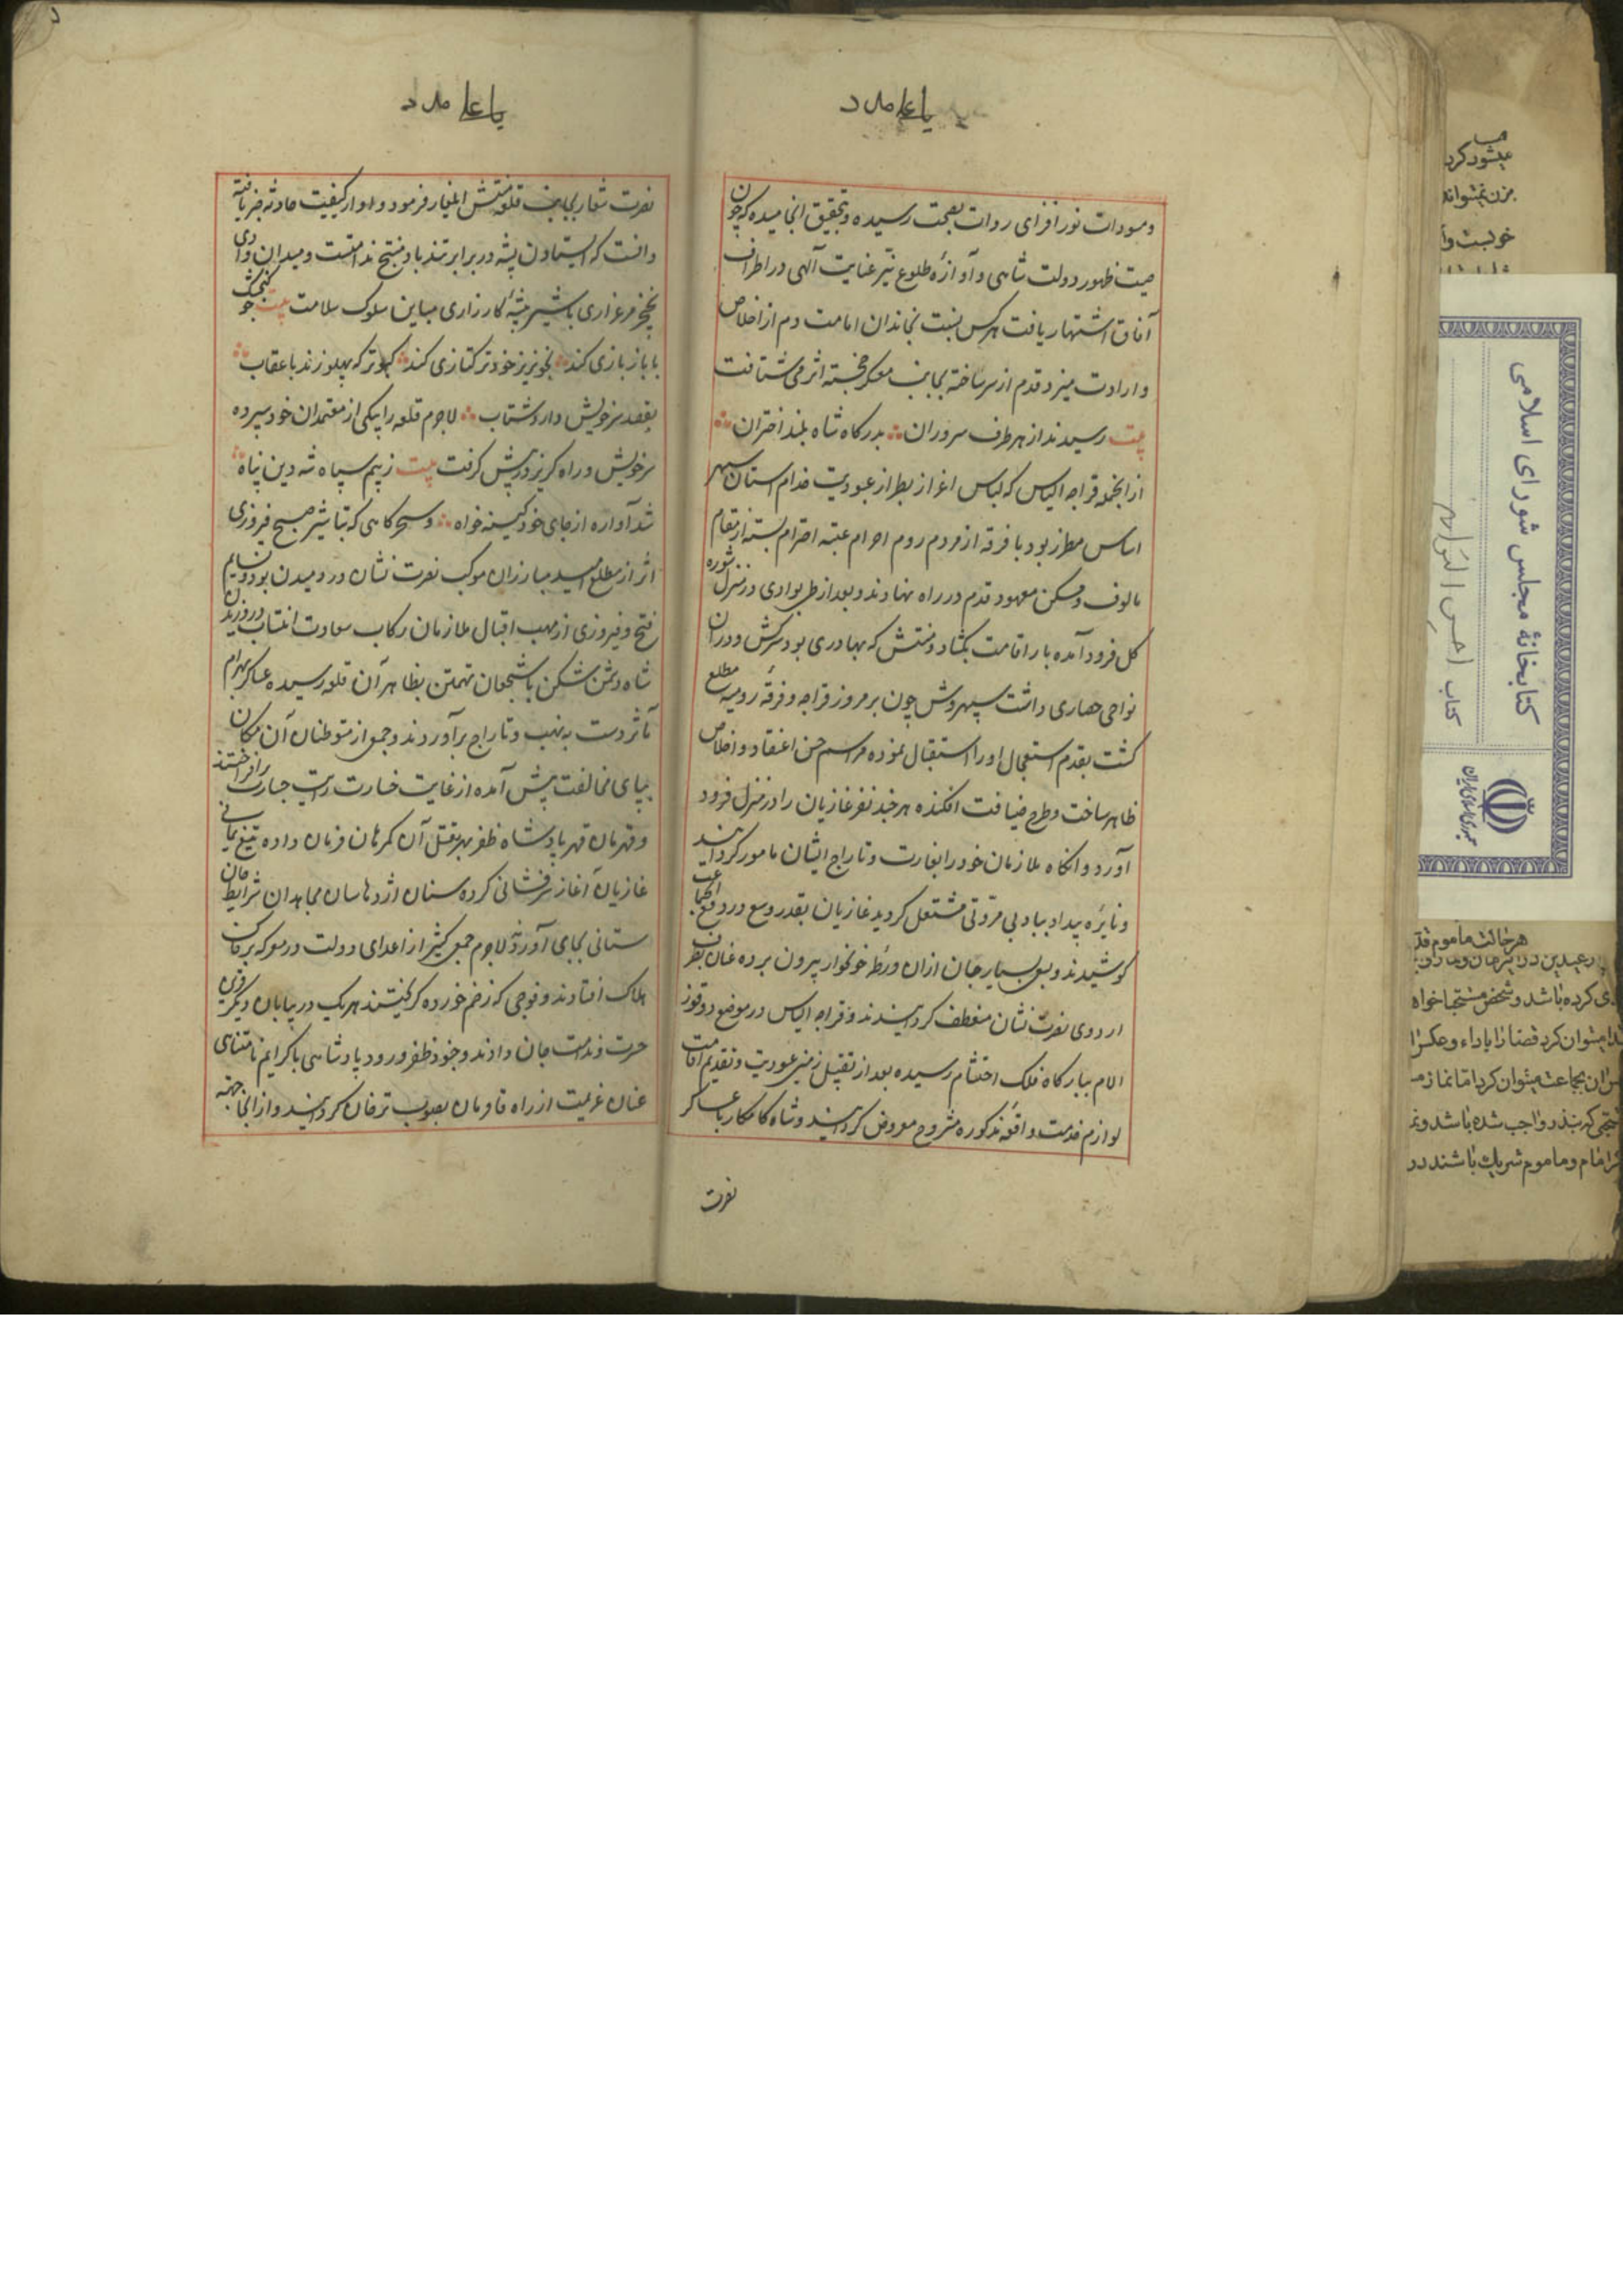 یا علی مدد
ومسودات نور افزای روات بصحت رسیده و بتحقیق انجامیده که چون
صیت ظهور دولت شاهی و آوازهٔ طلوع نیر عنایت آلهی در اطراف
آفاق اشتهار یافت هرکس بنسبت بخاندان امامت دم از اخلاص
و ارادت میزد قدم از سر ساخته بجانب معسکر خجسته اثر می شتافت
بیت رسیدند از هر طرف سروران بدرگاه شاه بلند اختران
از انجمله قراجه الیاس که لباس اعزاز بطراز عبودیت خدام استان سپهر
اساس مطرز بود با فرقه از مردم روم احرام عتبه احترام بسته از مقام
مالوف و مسکن معهود قدم در راه نهادند و بعد از طی بوادی در منزل شوره
کل فرود آمده بار اقامت بکشاد و منتش که بهادری بود سرکش و در ان
نواحی حصاری داشت سپهروش چون بر مرور قراجه و فرقهٔ رومیه مطلع
کشت بقدم استعجال او را استقبال نموده مراسم حسن اعتقاد و اخلاص
ظاهر ساخت و طرح ضیافت افکنده هر چند نفر غازیان را در منزل فرود
آورد و انکاه ملازمان خود را بغارت و تاراج ایشان مامور کردانید
و نایره بیداد بباد بی مروتی مشتعل کردید غازیان بقدر وسع در دفع
کوشیدند و بسعی بسیار جان ازان ورطهٔ خونخوار بیرون برده عنان بطرف
اردوی نصرت نشان منعطف کردانیدند و قراجه الیاس در موضع دوقوز
الام ببارکاه فلک احتشام رسیده بعد از تقبیل زمین عبودیت و تقدیم اقامت
لوازم خدمت واقعه مذکوره مشروح معروض کردانید و شاه کامکار با عساکر
نصرت
یا علی مدد
نصرت شعار بجانب قلعه منتش ایلغار فرمود و او از کیفیت حادثه خبر یافته
دانست که ایستادن پشه در برابر تند باد منتج ندامتست و میدان داری
نخجیر مرغزاری با شیر بیشهٔ کارزاری مباین سلوک سلامت بیت چو کنجشک
با باز بازی کند بخونریز خود ترکتازی کند کبوتر که پهلو زند با عقاب
بقصد سر خویش دارد شتاب لاجرم قلعه را بیکی از معتمدان خود سپرده
سر خویش و راه کریز در پیش کرفت بیت ز بیم سپاه شه دین پناه
شد آواره از جای خود کینه خواه و سحرکاهی که تباشیر صبح فیروزی
اثر از مطلع امید مبارزان موکب نصرت نشان در دمیدن بود و نسایم
فتح و فیروزی از مهب اقبال ملازمان رکاب سعادت انتساب در وزیدن
شاه دشمن شکن با شجعان تهمتن بظاهر آن قلعه رسیده عساکر بهرام
مآثر دست بنهب و تاراج برآوردند و جمعی از متوطنان آن مکان
بپای مخالفت پیش آمده از غایت خسارت رایت جسارت برافراختند
و قهرمان قهر پادشاه ظفر بهر بقتل آن کمرهان فرمان داده تیغ یمانی
غازیان آغاز سرفشانی کرده سنان اژدهاسان مجاهدان شرایط جان
ستانی بجای آورد لاجرم جمعی کثیر از اعدای دولت در معرکه بر خاک
هلاک افتادند و فوجی که زخم خورده کریختند هریک در بیابان دیکر
حسرت و ندامت جان دادند و جنود ظفر ورود پادشاهی با کرایم نامتناهی
عنان عزیمت از راه قاغزمان بصوب ترجان کردانیدند و از انجا
کتابخانهٔ مجلس شورای اسلامی
کتاب احسن التواریخ
جمهوری اسلامی ایران
میشود کرد